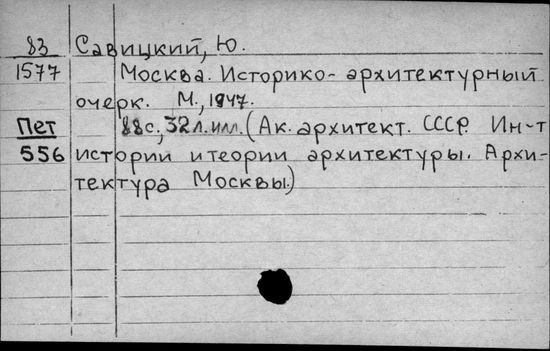 83 Савицкий, Ю.
1577 Москва. Историко-архитектурный
очерк. М., 1947.
Пет 88с., 32 л. илл. (Ак. архитект. СССР. Ин-т
556 истории и теории архитектуры. Архи-
тектура Москвы.)